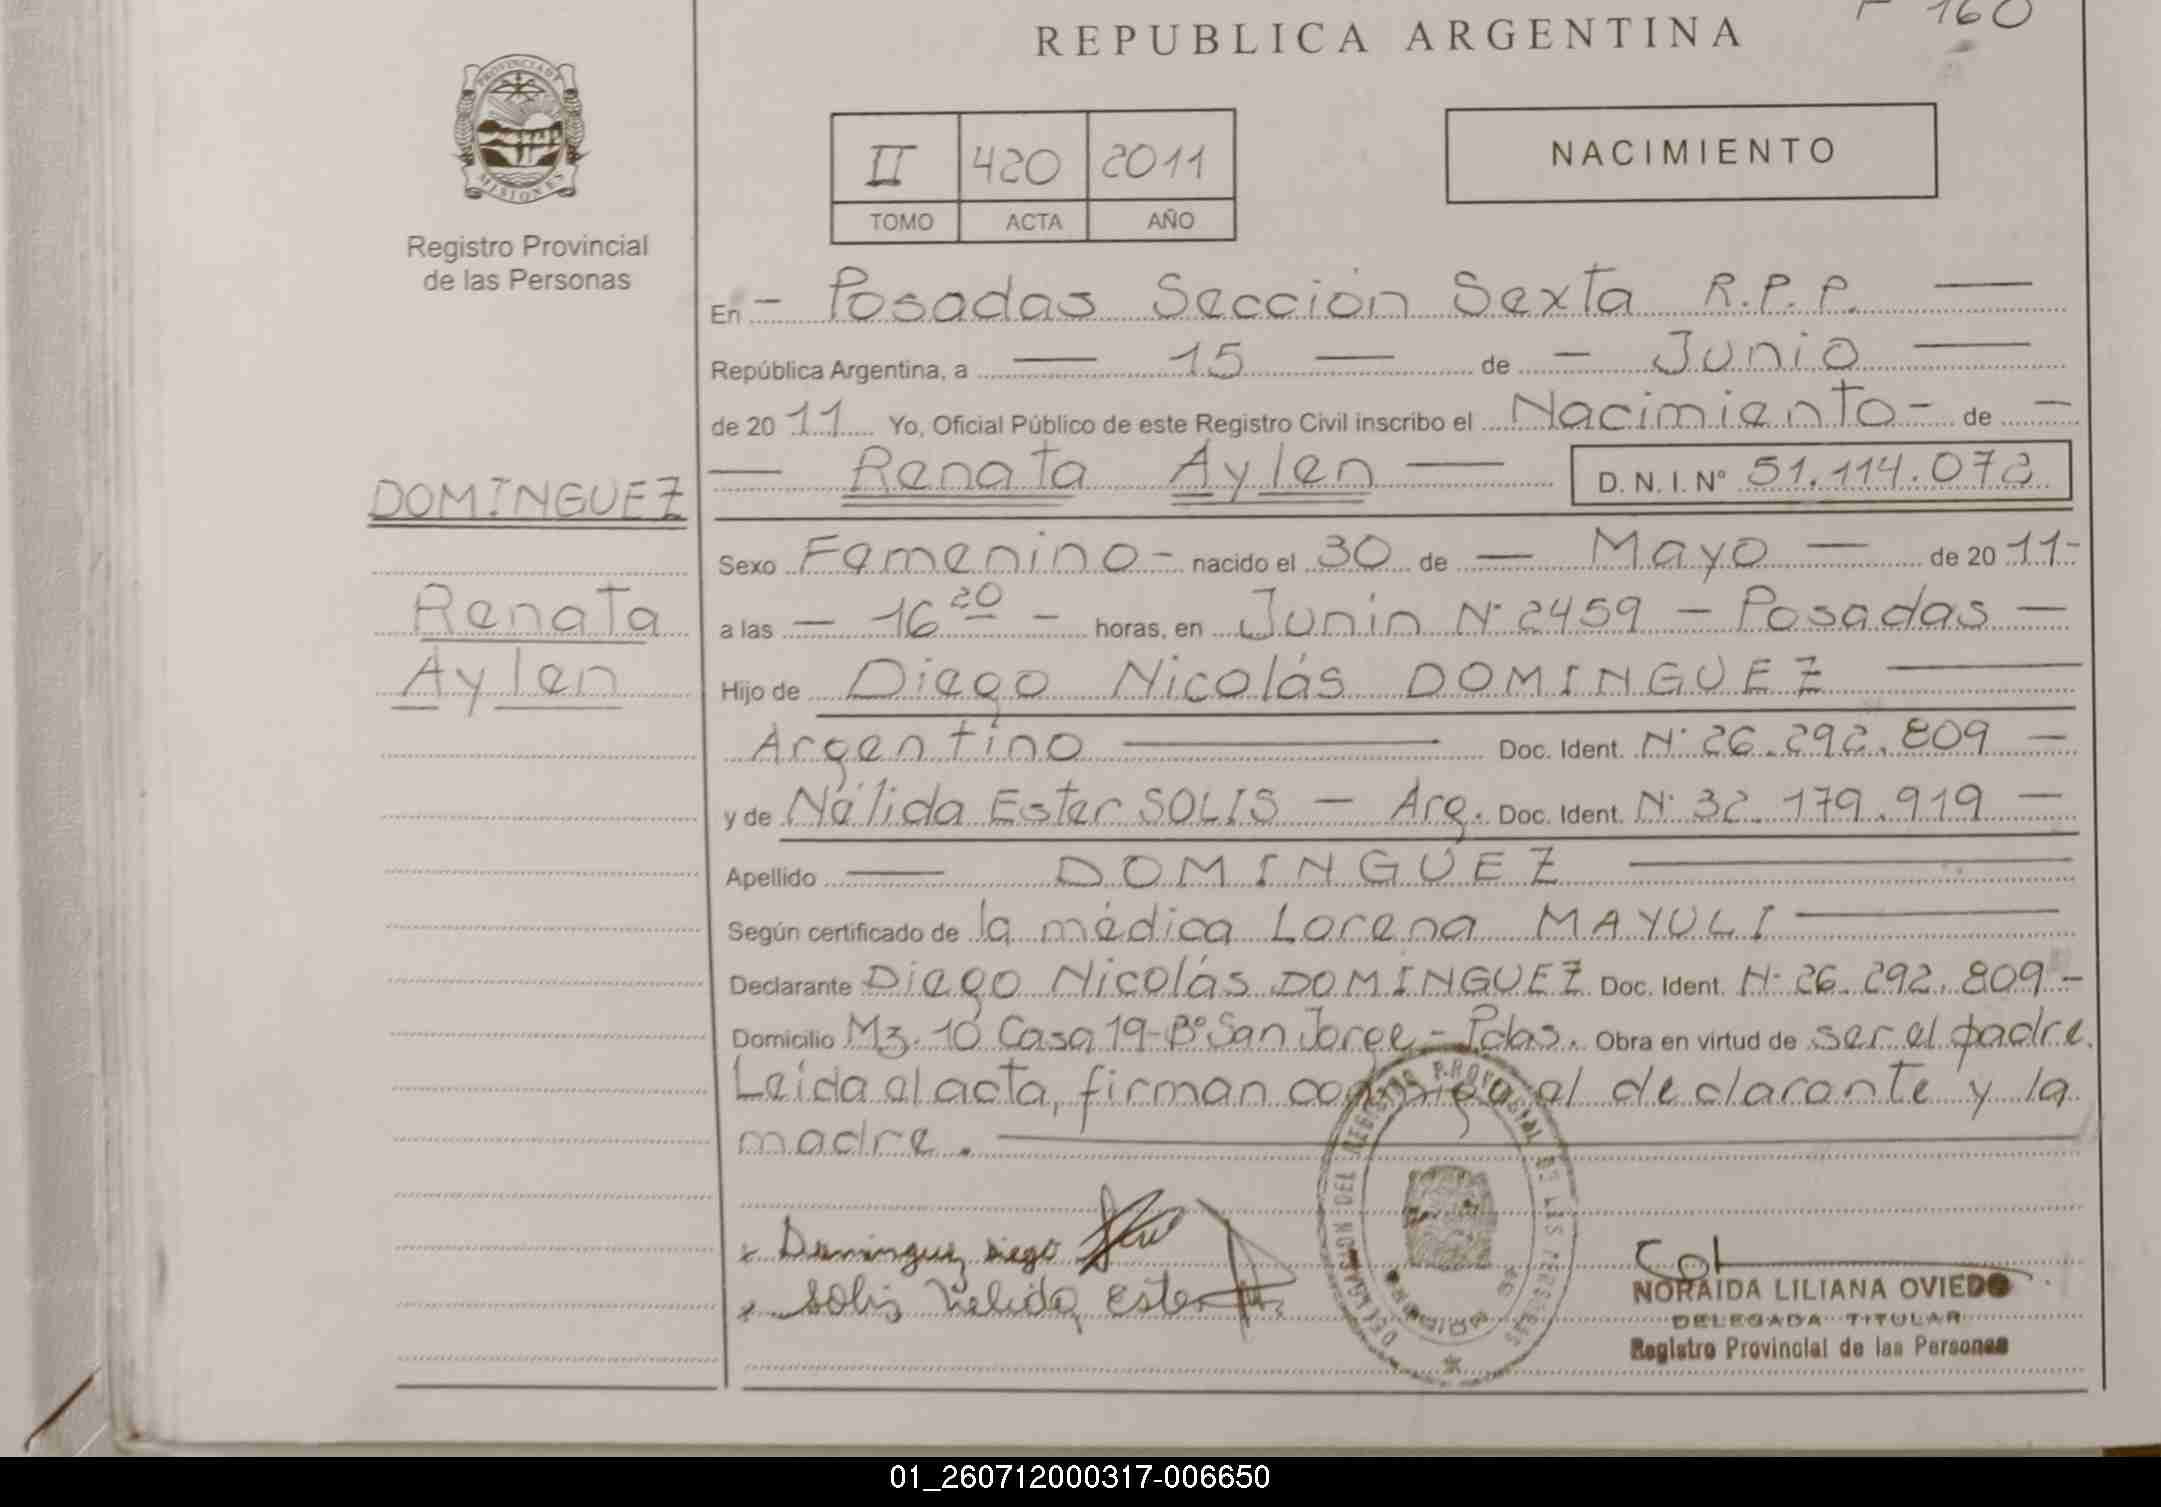 REPUBLICA ARGENTINA
F 160
PROVINCIA DE MISIONES
Registro Provincial
de las Personas
II 420 2011
TOMO ACTA AÑO
NACIMIENTO
En - Posadas Sección Sexta R.P.P. —
República Argentina, a — 15 — de - Junio —
de 20 11 Yo, Oficial Público de este Registro Civil inscribo el Nacimiento - de -
— Renata Aylen — D.N.I. Nº 51.114.072
DOMINGUEZ
Renata
Aylen
Sexo Femenino - nacido el 30 de — Mayo — de 20 11 -
a las - 16 20 - horas, en Junin Nº 2459 - Posadas -
Hijo de Diego Nicolás DOMINGUEZ —
Argentino — Doc. Ident. Nº 26.292.809 -
y de Nélida Ester SOLIS - Arg. Doc. Ident. Nº 32.179.919 -
Apellido — DOMINGUEZ —
Según certificado de la médica Lorena MAYULI —
Declarante Diego Nicolás DOMINGUEZ Doc. Ident. Nº 26.292.809 -
Domicilio Mz. 10 Casa 19 - Bº San Jorge - Pdas. Obra en virtud de ser el padre.
Leída el acta, firman conmigo el declarante y la
madre. —
x Dominguez Diego
x Solis Nelida Ester
REGISTRO PROVINCIAL DE LAS PERSONAS
NORAIDA LILIANA OVIEDO
DELEGADA TITULAR
Registro Provincial de las Personas
01_260712000317-006650